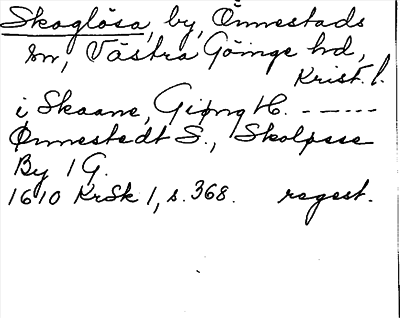 Skoglösa, by, Önnestads
sn, Västra Göinge hd,
Krist. l.
i Skaane, Giøng H. -----
Ønnestedt S., Skoløsse
By 1 G.
1610 KrSk 1, s. 368. regest.